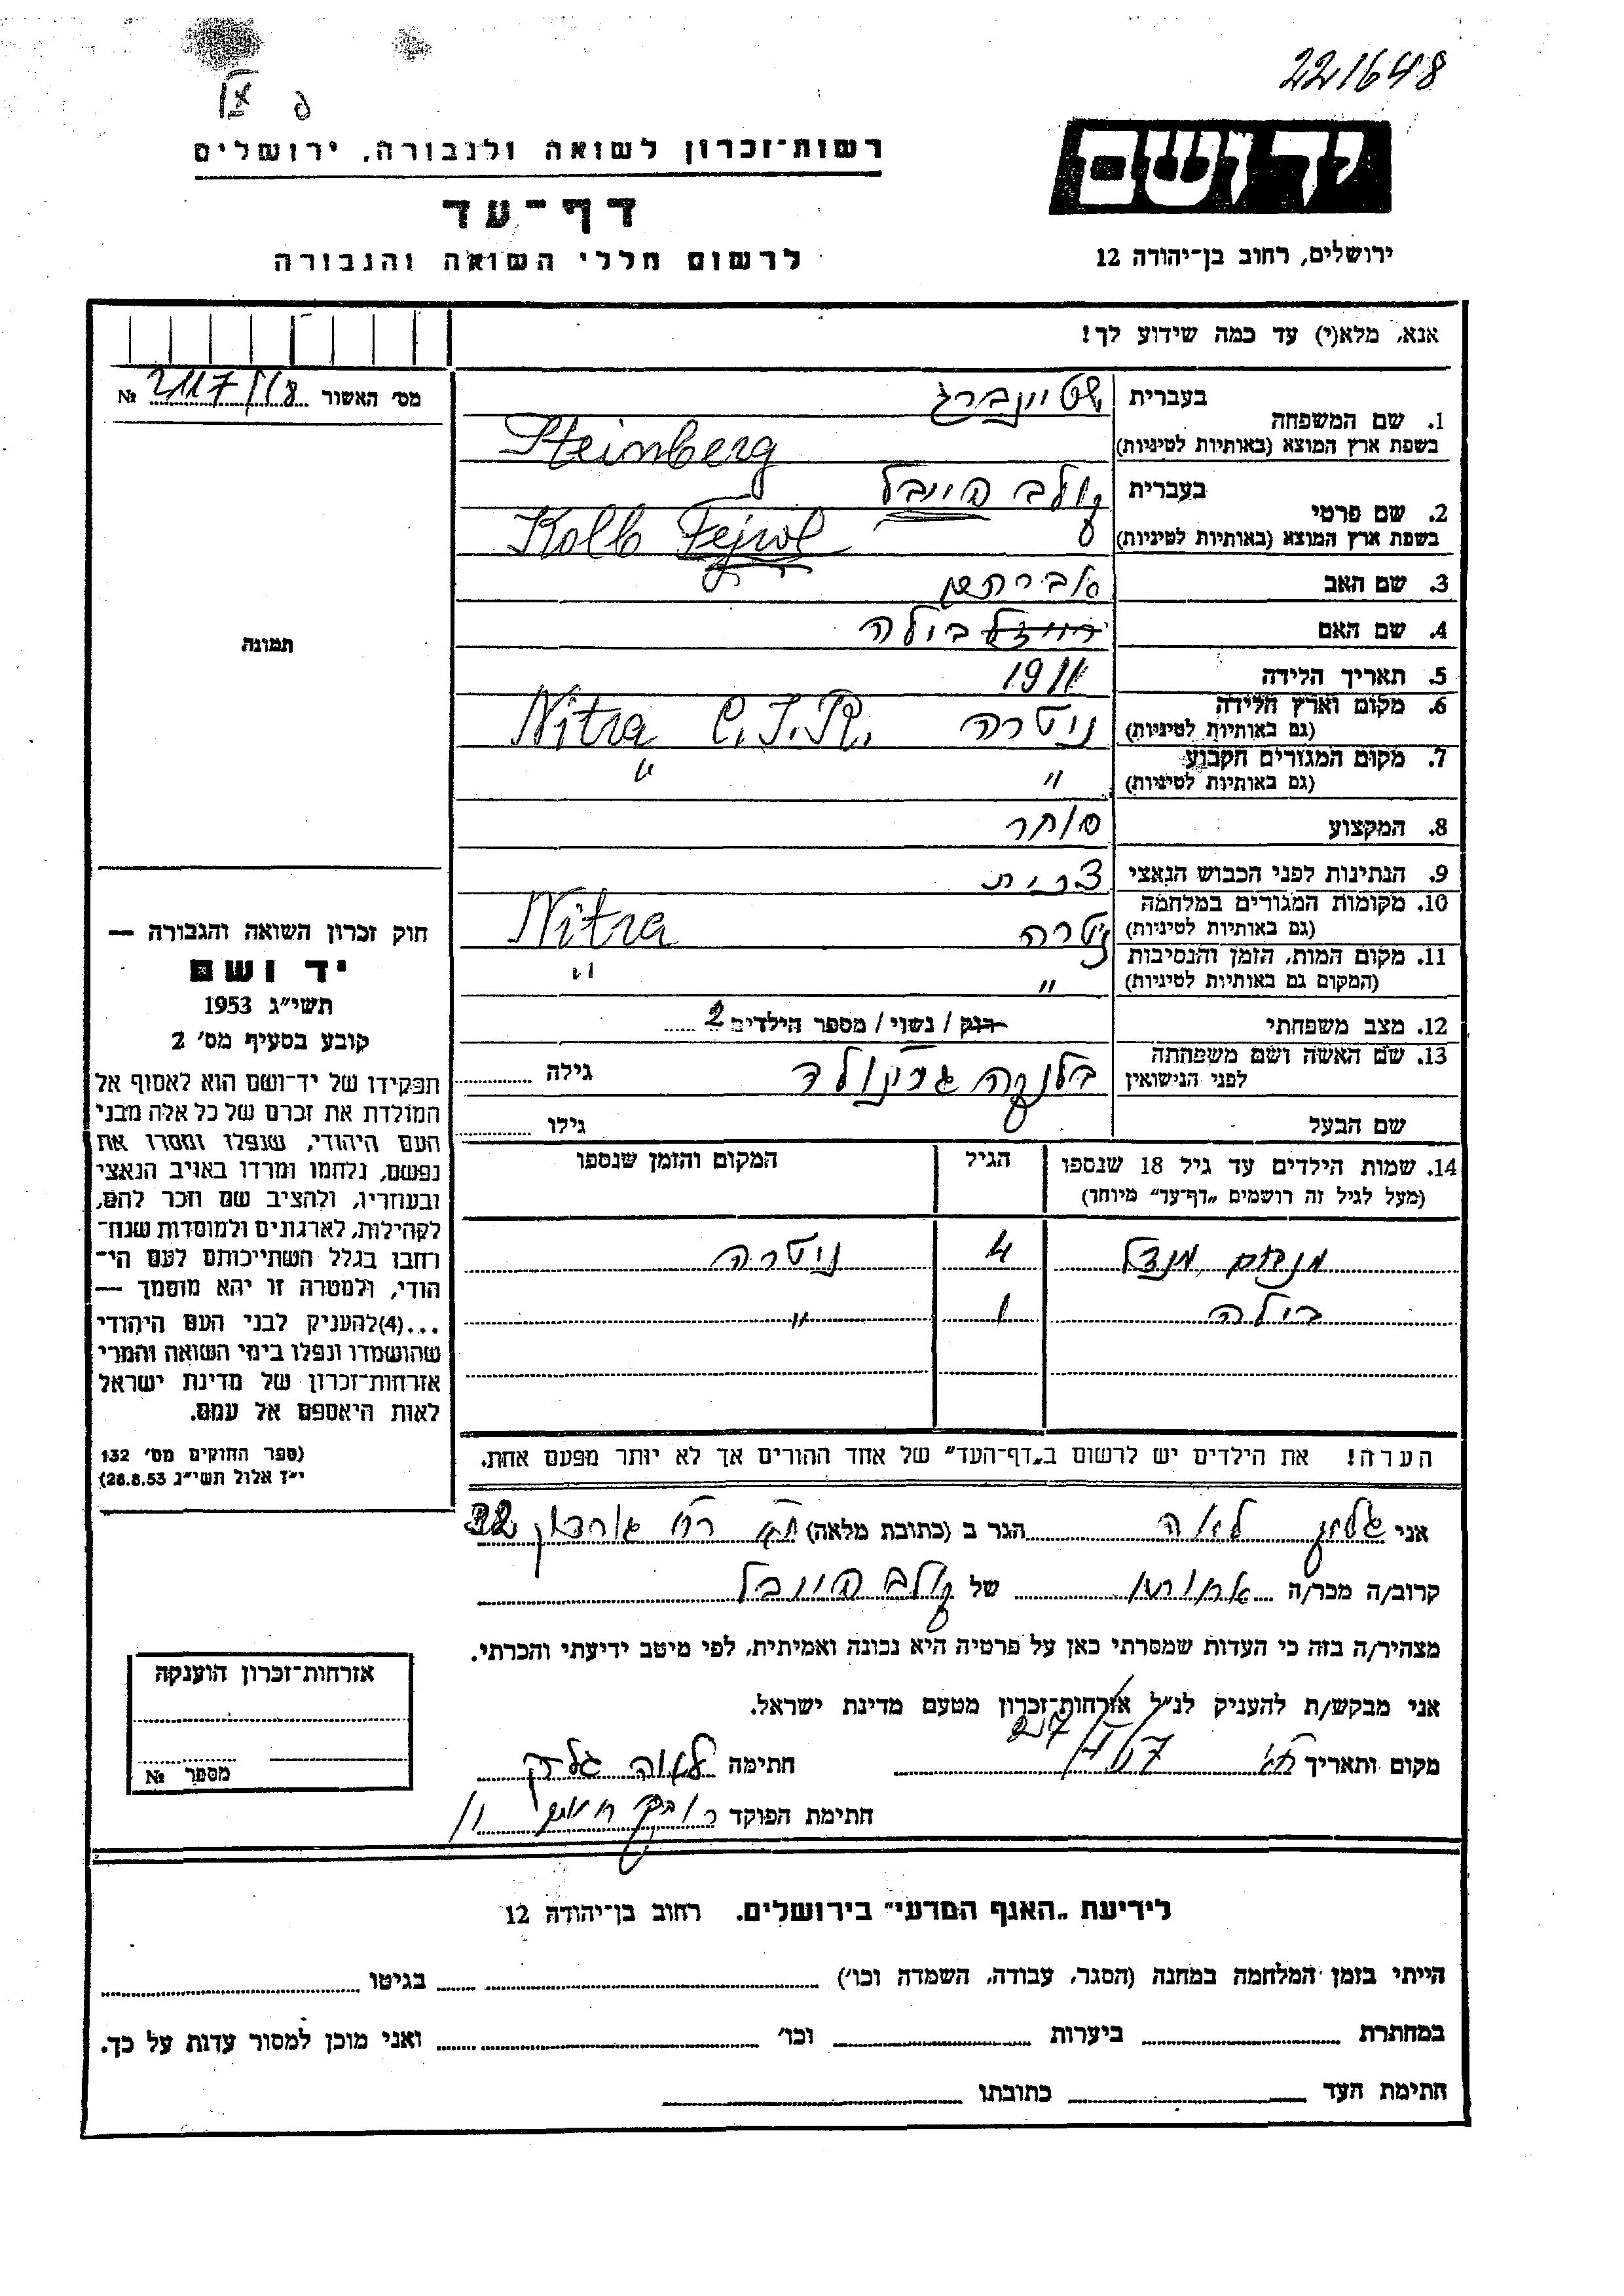 221648
רשות-זכרון לשואה ולגבורה, ירושלים
דף-עד
לרשום חללי השואה והגבורה
יד ושם
ירושלים, רחוב בן-יהודה 12
אנא, מלא(י) עד כמה שידוע לך!
מס׳ האשור № 2117/118
תמונה
1. שם המשפחה
בעברית שטיינברג
בשפת ארץ המוצא (באותיות לטיניות) Steinberg
2. שם פרטי
בעברית קולב פייבל
בשפת ארץ המוצא (באותיות לטיניות) Kolb Fejwl
3. שם האב אברהם
4. שם האם בילה
5. תאריך הלידה 1911
6. מקום וארץ הלידה (גם באותיות לטיניות) ניטרה Nitra
7. מקום המגורים הקבוע (גם באותיות לטיניות) " "
8. המקצוע סוחר
9. הנתינות לפני הכבוש הנאצי צכית
10. מקומות המגורים במלחמה (גם באותיות לטיניות) ניטרה Nitra
11. מקום המות, הזמן והנסיבות (המקום גם באותיות לטיניות) " "
12. מצב משפחתי רוק / נשוי / מספר הילדים 2
13. שם האשה ושם משפחתה לפני הנישואין בלנקה גרינולד גילה
שם הבעל גילו
14. שמות הילדים עד גיל 18 שנספו (מעל לגיל זה רושמים „דף-עד״ מיוחד) הגיל המקום והזמן שנספו
מנחם מנדל 4 ניטרה
בילה 1 "
הערה! את הילדים יש לרשום ב„דף-העד״ של אחד ההורים אך לא יותר מפעם אחת.
חוק זכרון השואה והגבורה —
יד ושם
תשי״ג 1953
קובע בסעיף מס׳ 2
תפקידו של יד-ושם הוא לאסוף אל
המולדת את זכרם של כל אלה מבני
העם היהודי, שנפלו ומסרו את
נפשם, נלחמו ומרדו באויב הנאצי
ובעוזריו, ולהציב שם וזכר להם,
לקהילות, לארגונים ולמוסדות שנח-
רחבו בגלל השתייכותם לעם הי-
הודי, ולמטרה זו יהא מוסמך —
...(4)להעניק לבני העם היהודי
שהושמדו ונפלו בימי השואה והמרי
אזרחות-זכרון של מדינת ישראל
לאות היאספם אל עמם.
(ספר החוקים מס׳ 132
י״ז אלול תשי״ג 28.8.53)
אני לאה הגר ב (כתובת מלאה) 32
קרוב/ה מכר/ה של קולב פייבל
מצהיר/ה בזה כי העדות שמסרתי כאן על פרטיה היא נכונה ואמיתית, לפי מיטב ידיעתי והכרתי.
אני מבקש/ת להעניק לנ״ל אזרחות-זכרון מטעם מדינת ישראל.
מקום ותאריך חתימה
חתימת הפוקד
אזרחות-זכרון הוענקה
מספר №
לידיעת „האגף המדעי״ בירושלים. רחוב בן-יהודה 12
הייתי בזמן המלחמה במחנה (הסגר, עבודה, השמדה וכו׳) בגיטו
במחתרת ביערות וכו׳ ואני מוכן למסור עדות על כך.
חתימת העד כתובתו